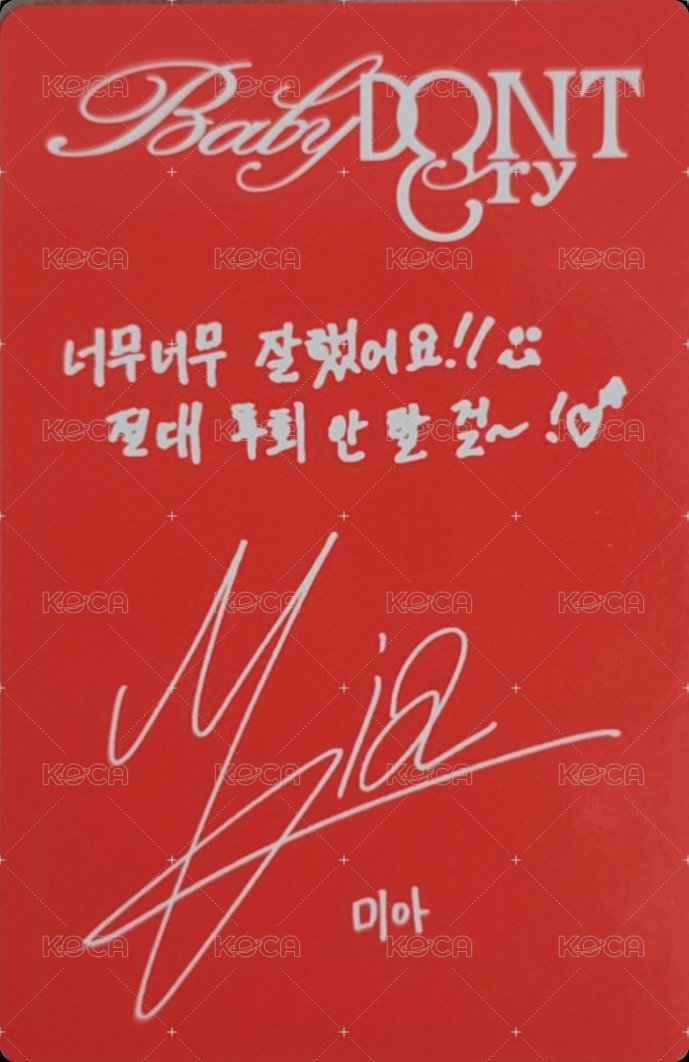 Baby DONT Cry
너무너무 잘했어요!! :)
절대 후회 안 할 걸~!♡
Mia
미아
KOCA